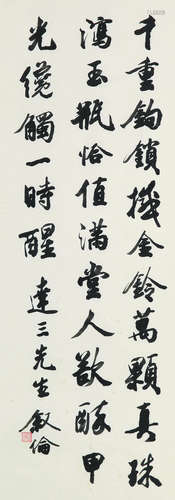 千重钩鎖撼金鈴萬顆真珠
瀉玉瓶恰值滿堂人欲醉甲
光纔觸一時醒 達三先生 叙倫